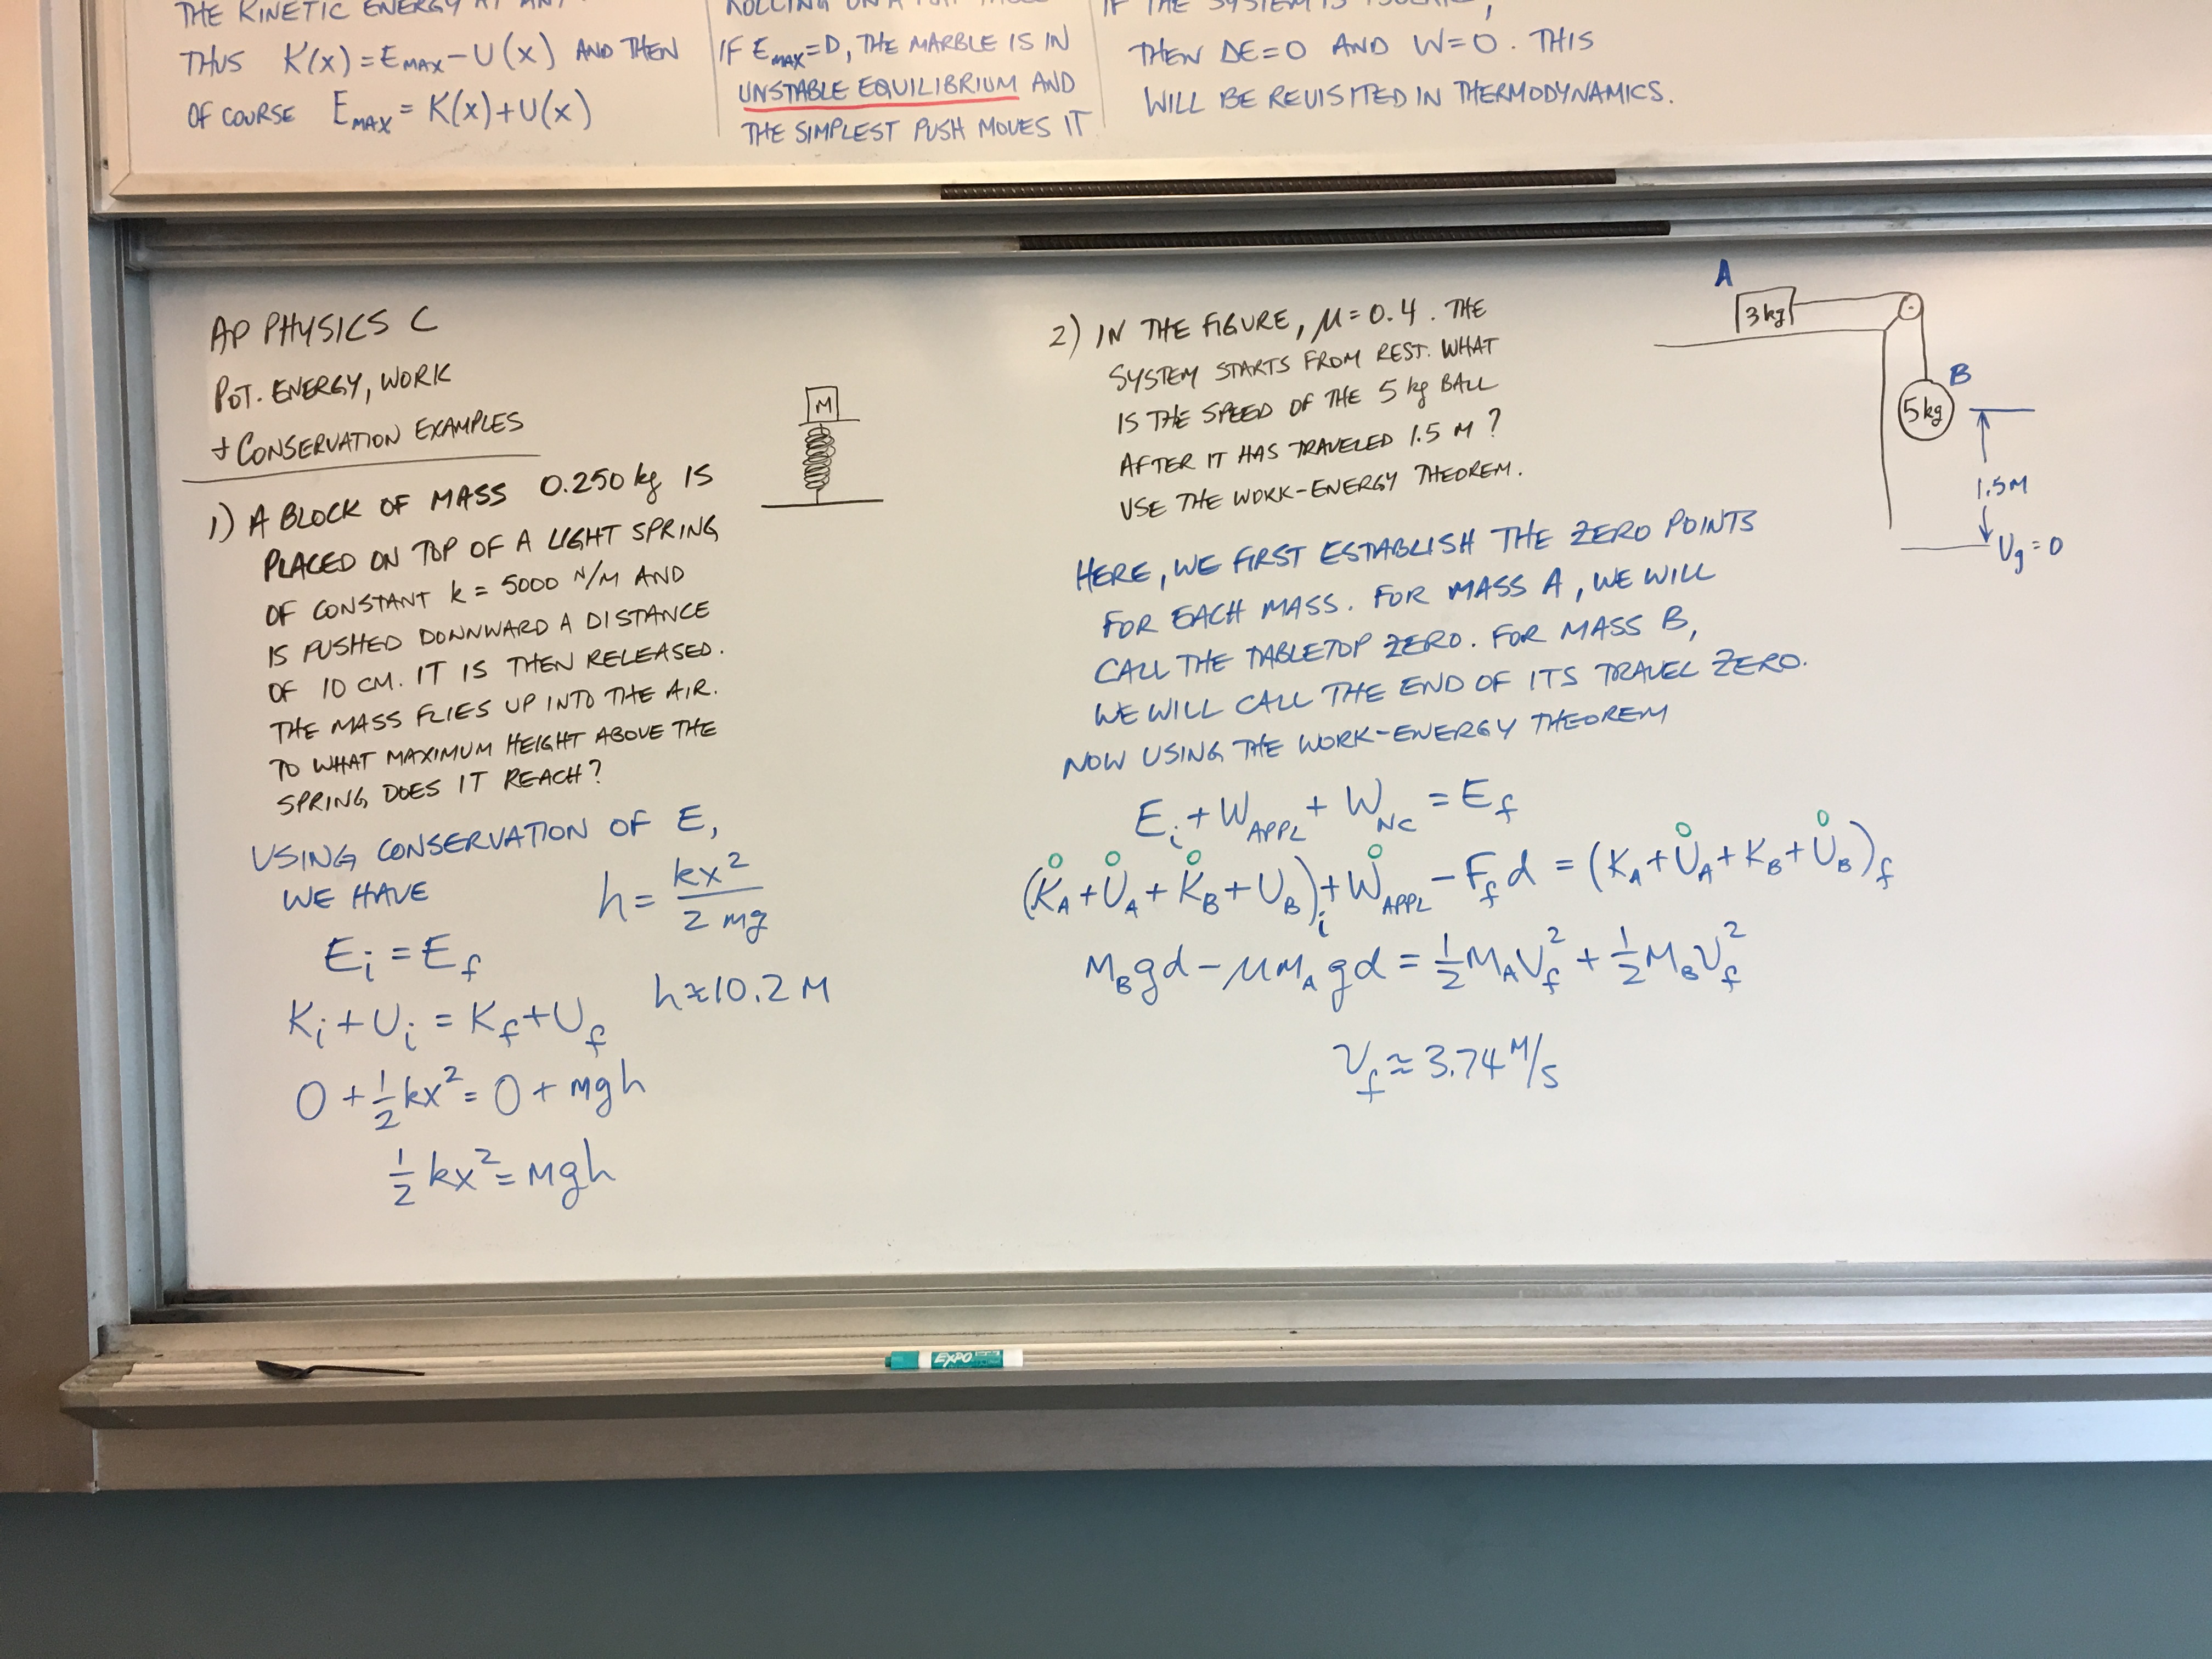 THE KINETIC ENERGY AT ANY
THUS K(x) = E_MAX - U(x) AND THEN
OF COURSE E_MAX = K(x) + U(x)
ROLLING ON A
IF E_MAX = D, THE MARBLE IS IN
UNSTABLE EQUILIBRIUM AND
THE SIMPLEST PUSH MOVES IT
IF THE SYSTEM IS
THEN ΔE=0 AND W=0. THIS
WILL BE REVISITED IN THERMODYNAMICS.
AP PHYSICS C
POT. ENERGY, WORK
+ CONSERVATION EXAMPLES
M
1) A BLOCK OF MASS 0.250 kg IS
PLACED ON TOP OF A LIGHT SPRING
OF CONSTANT k = 5000 N/M AND
IS PUSHED DOWNWARD A DISTANCE
OF 10 CM. IT IS THEN RELEASED.
THE MASS FLIES UP INTO THE AIR.
TO WHAT MAXIMUM HEIGHT ABOVE THE
SPRING DOES IT REACH?
USING CONSERVATION OF E,
WE HAVE
E_i = E_f
K_i + U_i = K_f + U_f
0 + 1/2 kx² = 0 + mgh
1/2 kx² = mgh
h = kx²/2mg
h ≈ 10.2 M
2) IN THE FIGURE, μ = 0.4. THE
SYSTEM STARTS FROM REST. WHAT
IS THE SPEED OF THE 5 kg BALL
AFTER IT HAS TRAVELED 1.5 M?
USE THE WORK-ENERGY THEOREM.
A
3 kg
B
5 kg
1.5 M
U_g = 0
HERE, WE FIRST ESTABLISH THE ZERO POINTS
FOR EACH MASS. FOR MASS A, WE WILL
CALL THE TABLETOP ZERO. FOR MASS B,
WE WILL CALL THE END OF ITS TRAVEL ZERO.
NOW USING THE WORK-ENERGY THEOREM
E_i + W_APPL + W_NC = E_f
0 0 0 0 0 0
(K_A + U_A + K_B + U_B)_i + W_APPL - F_f d = (K_A + U_A + K_B + U_B)_f
M_B gd - μM_A gd = 1/2 M_A V_f² + 1/2 M_B V_f²
V_f ≈ 3.74 M/S
EXPO